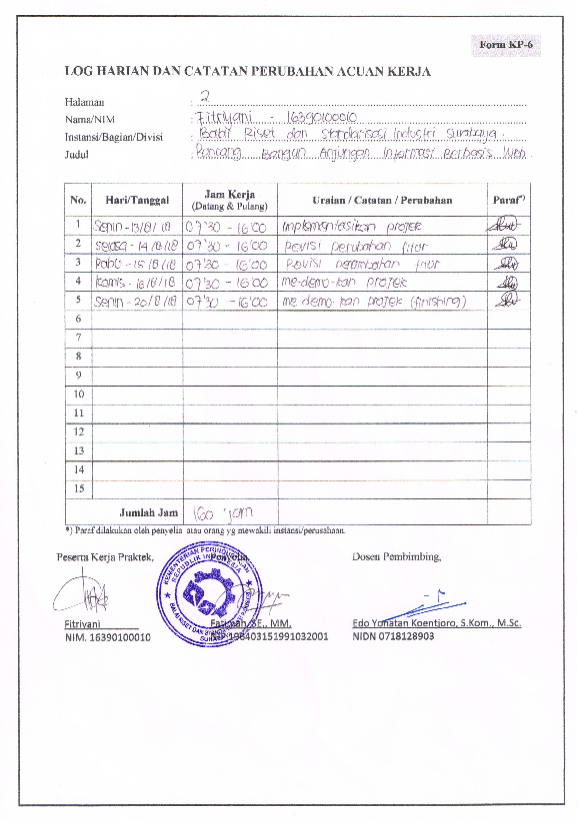 Form KP-6
LOG HARIAN DAN CATATAN PERUBAHAN ACUAN KERJA
Halaman : 2
Nama/NIM : Fitriyani - 16390100010
Instansi/Bagian/Divisi : Balai Riset dan Standarisasi Industri Surabaya
Judul : Rancang Bangun Anjungan Informasi Berbasis Web
No. Hari/Tanggal Jam Kerja (Datang & Pulang) Uraian / Catatan / Perubahan Paraf*)
1 Senin - 13/8/18 07'30 - 16'00 Implementasikan projek
2 Selasa - 14/8/18 07'30 - 16'00 Revisi perubahan fitur
3 Rabu - 15/8/18 07'30 - 16'00 Revisi fitur
4 Kamis - 16/8/18 07'30 - 16'00 me-demo-kan projek
5 Senin - 20/8/18 07'30 - 16'00 me demo-kan projek (finishing)
6
7
8
9
10
11
12
13
14
15
Jumlah Jam 160 jam
*) Paraf dilakukan oleh penyelia atau orang yg mewakili instansi/perusahaan.
Peserta Kerja Praktek, Penyelia, Dosen Pembimbing,
KEMENTERIAN PERINDUSTRIAN
REPUBLIK INDONESIA
BALAI RISET DAN
Fitriyani SE., MM. Edo Yonatan Koentjoro, S.Kom., M.Sc.
NIM. 16390100010 198403151991032001 NIDN 0718128903